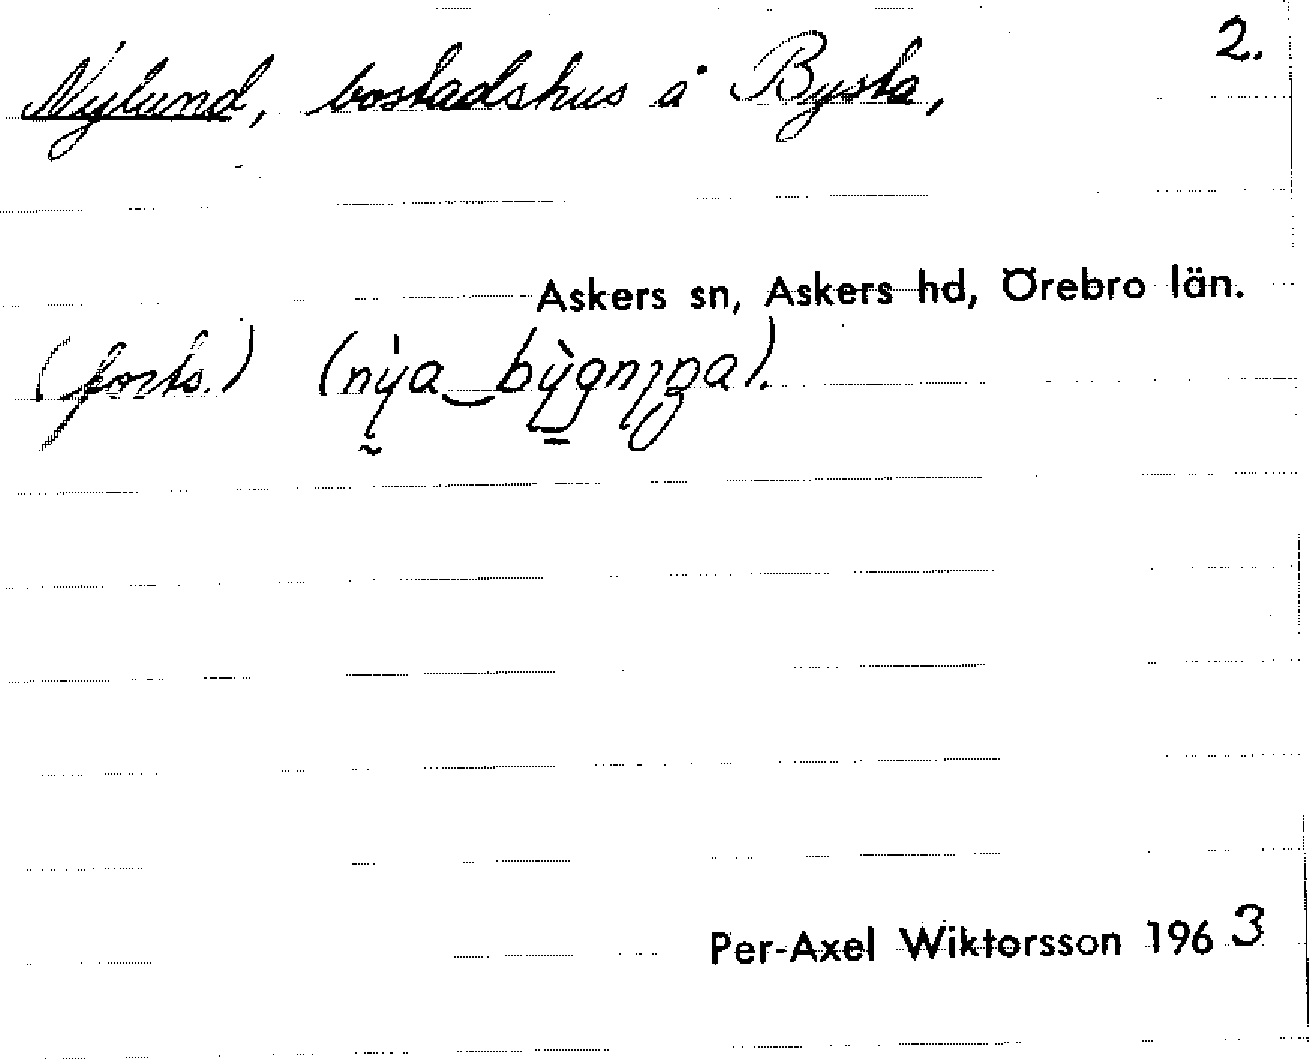 2.
Nylund, bostadshus å Bysta,
Askers sn, Askers hd, Örebro län.
(forts.) (nỳa‿bỳgnıŋa).
Per-Axel Wiktorsson 1963